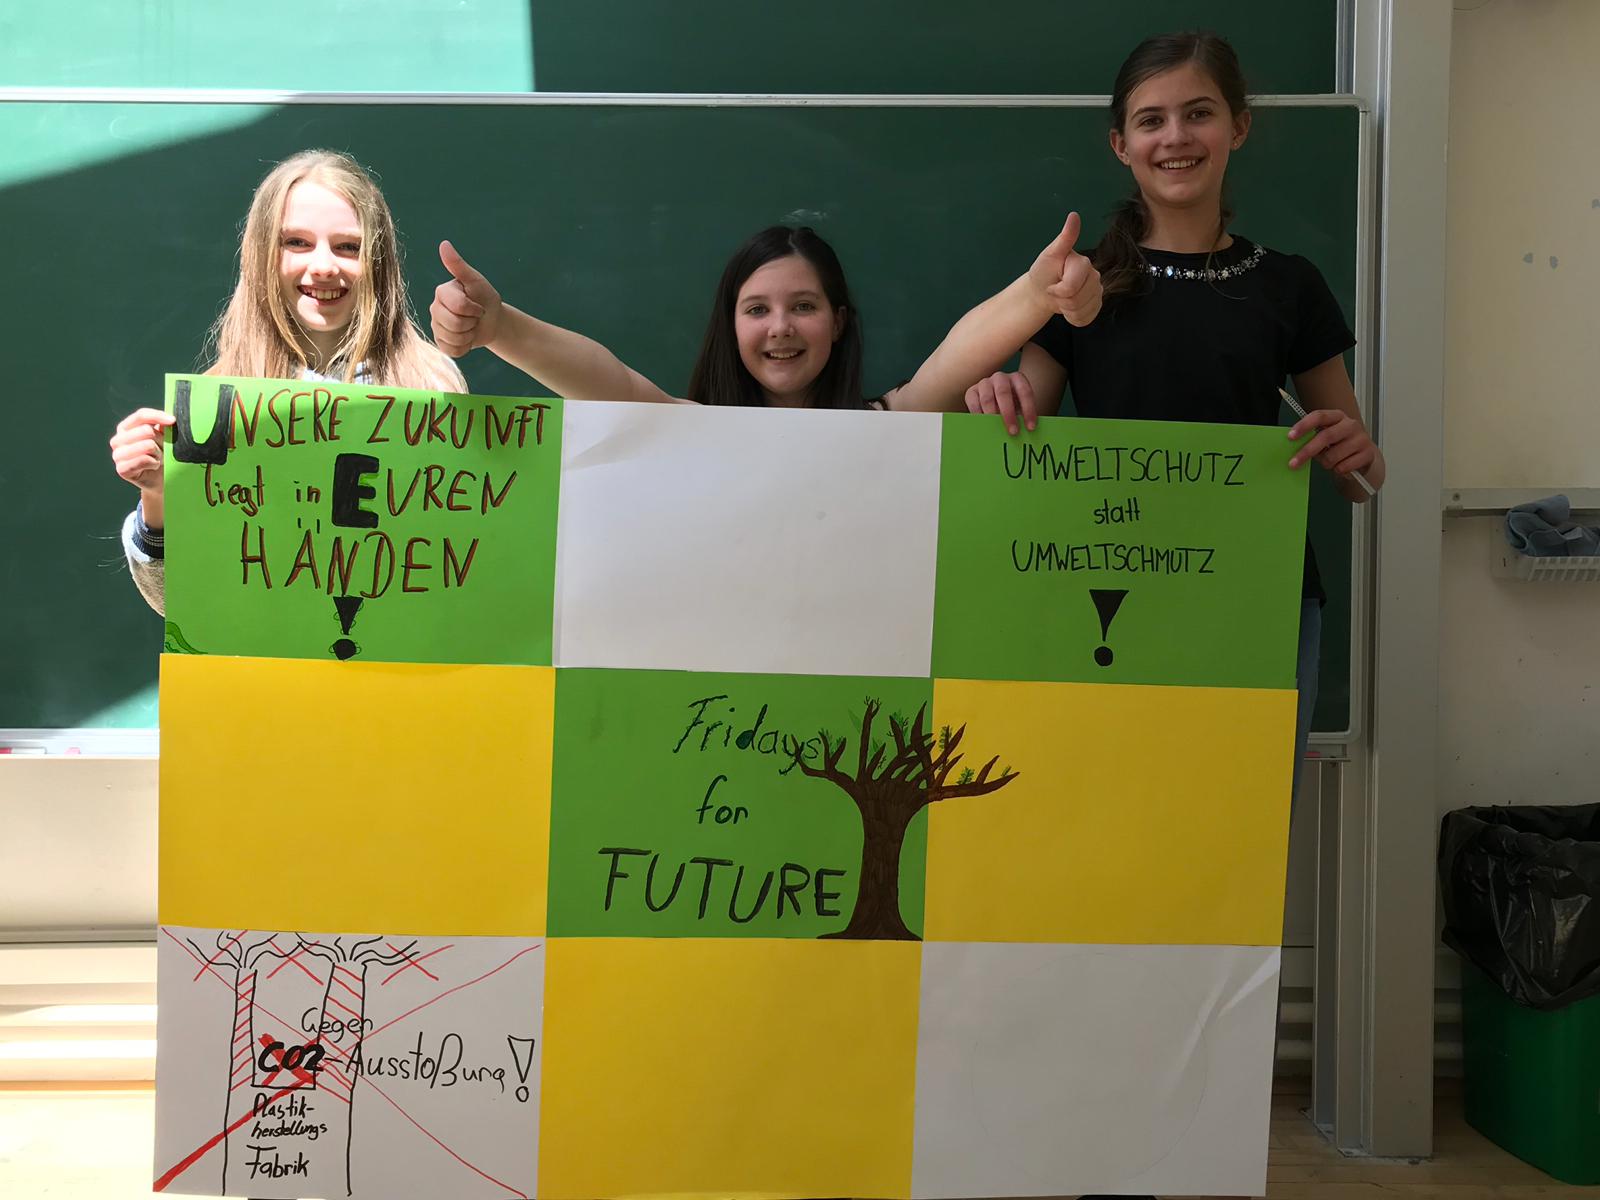 UNSERE ZUKUNFT
liegt in EUREN
HÄNDEN
!
UMWELTSCHUTZ
statt
UMWELTSCHMUTZ
!
Fridays
for
FUTURE
Gegen
CO2-Ausstoßung!
Plastik-
herstellungs
Fabrik